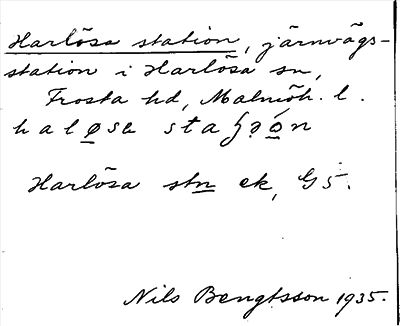 Harlösa station, järnvägs-
station i Harlösa sn,
Frosta hd, Malmöh. l.
Harlösa stn ek, G5.
Nils Bengtsson 1935.